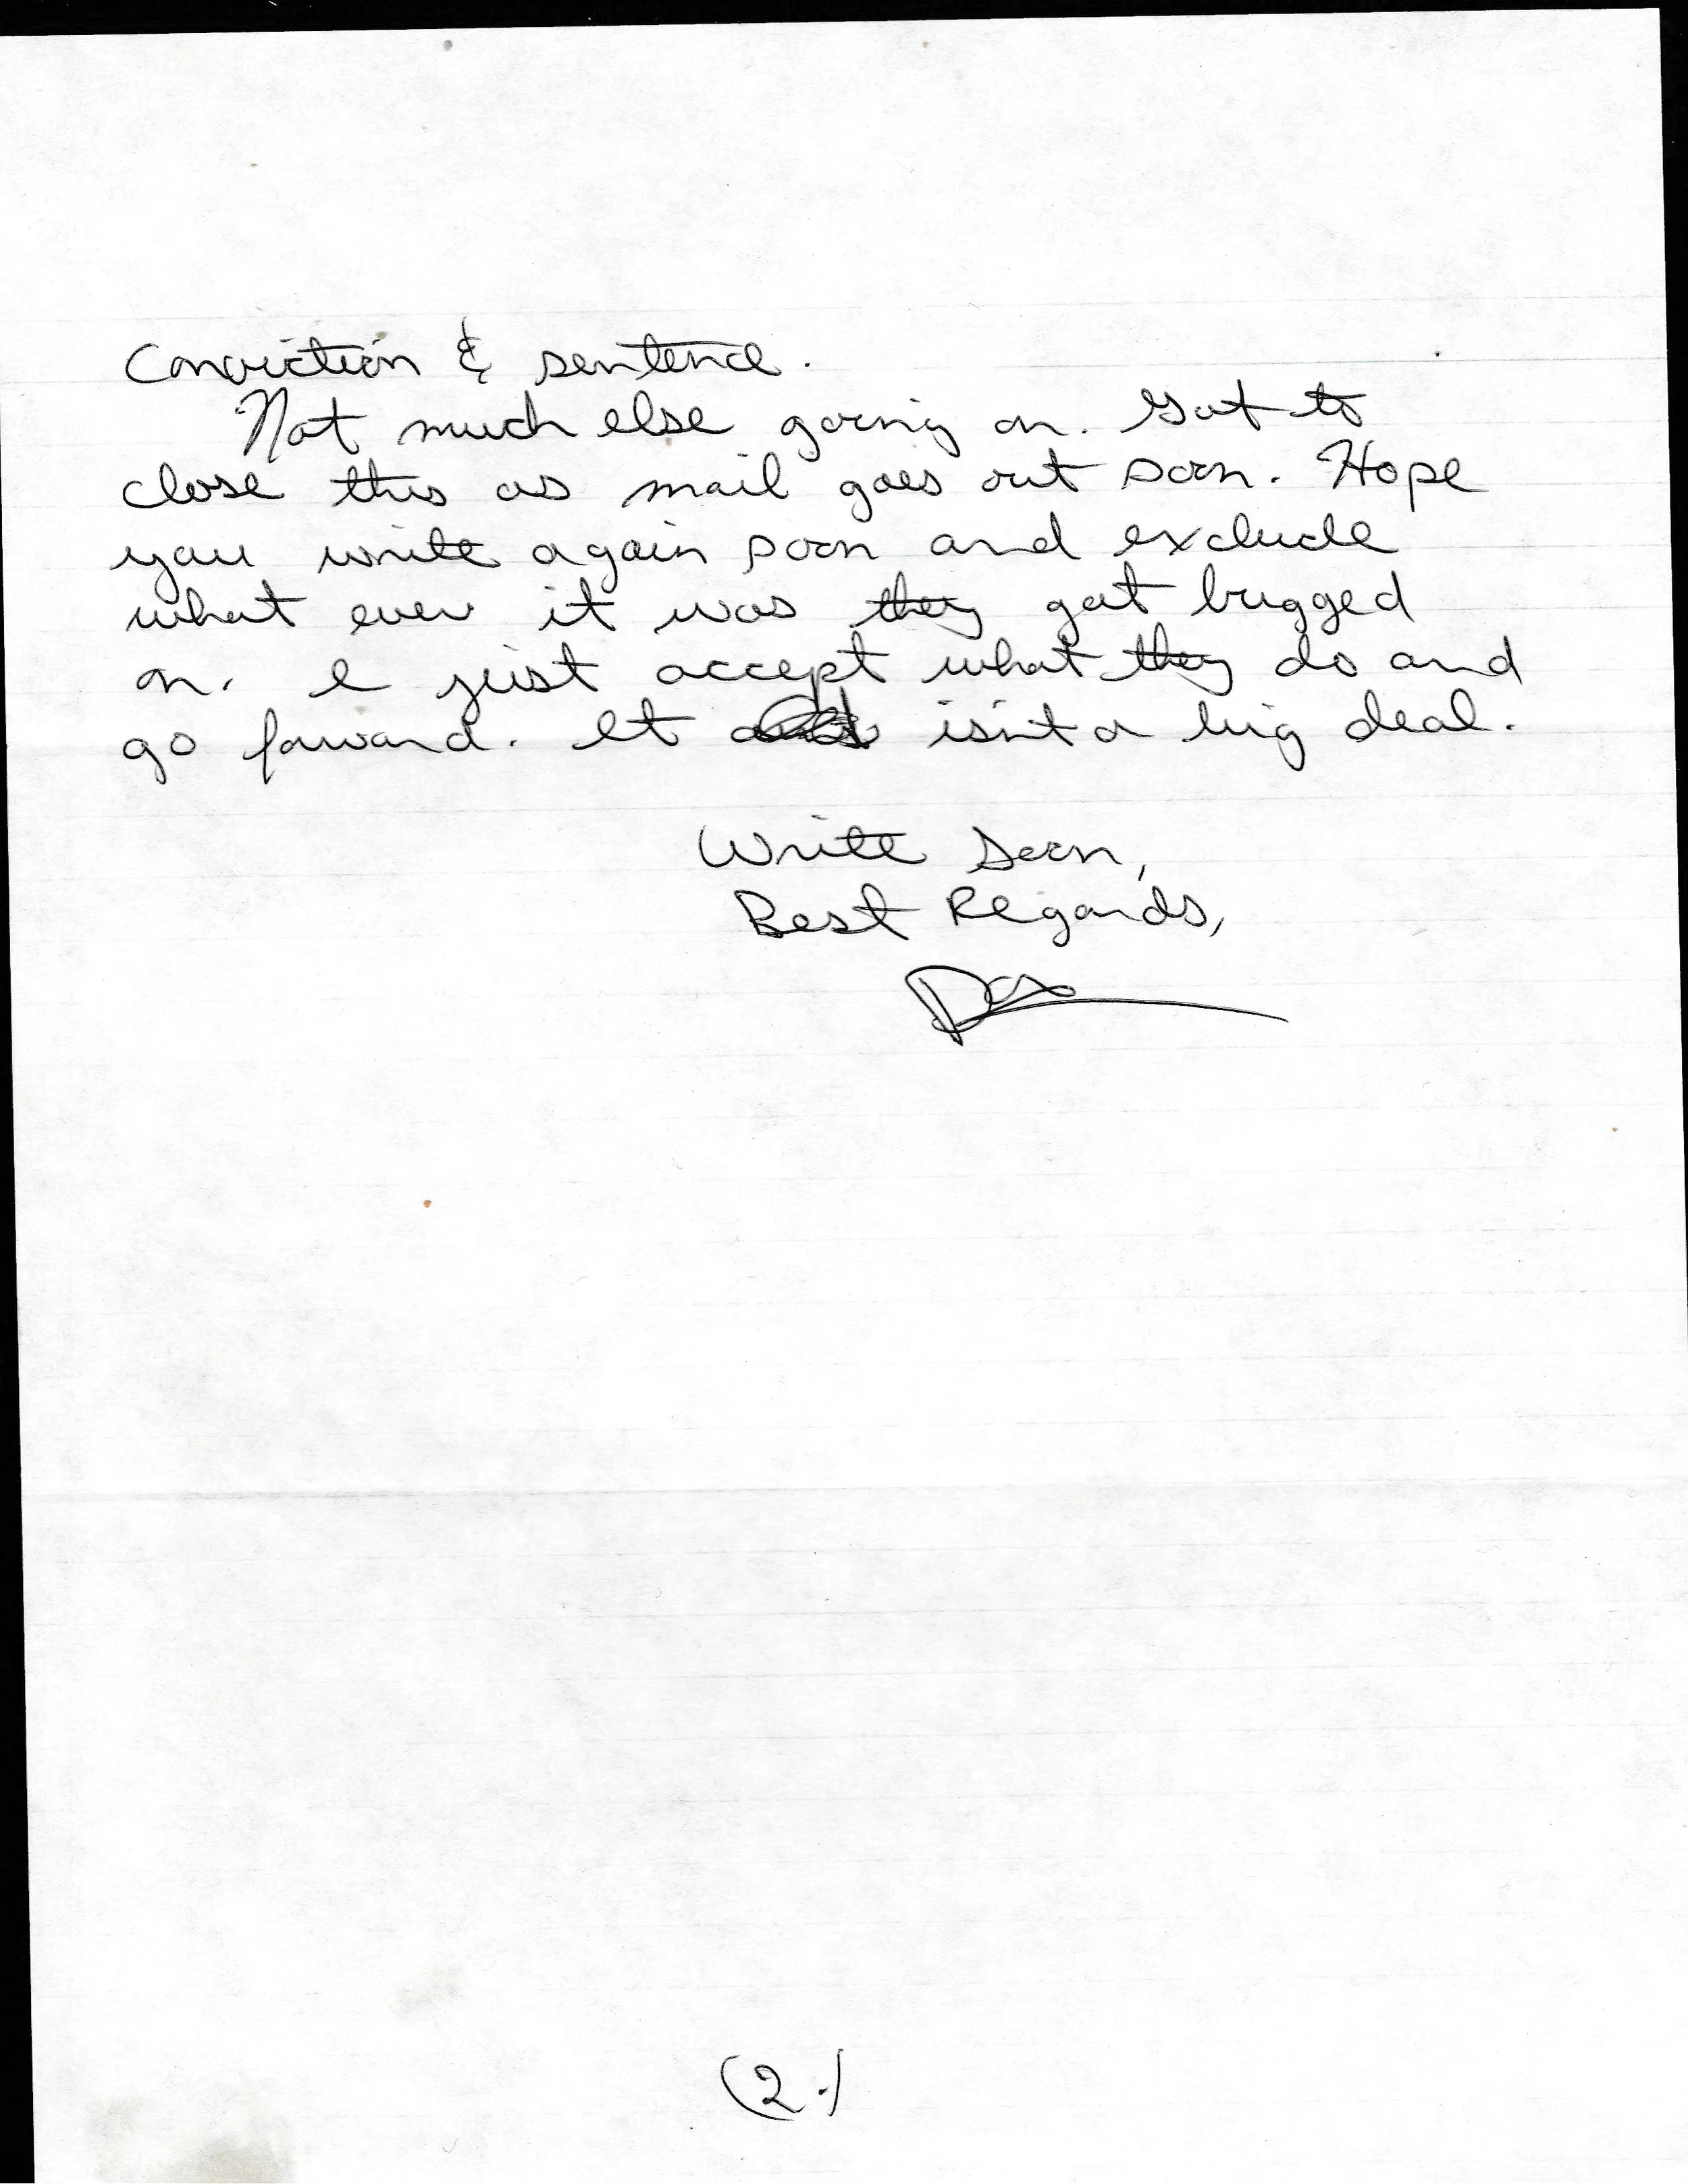 Conviction & sentence.
Not much else going on. Got to
close this as mail goes out soon. Hope
you write again soon and exclude
what ever it was they got bugged
on. I just accept what they do and
go forward. It isn't a big deal.
Write Soon,
Best Regards,
(2.)